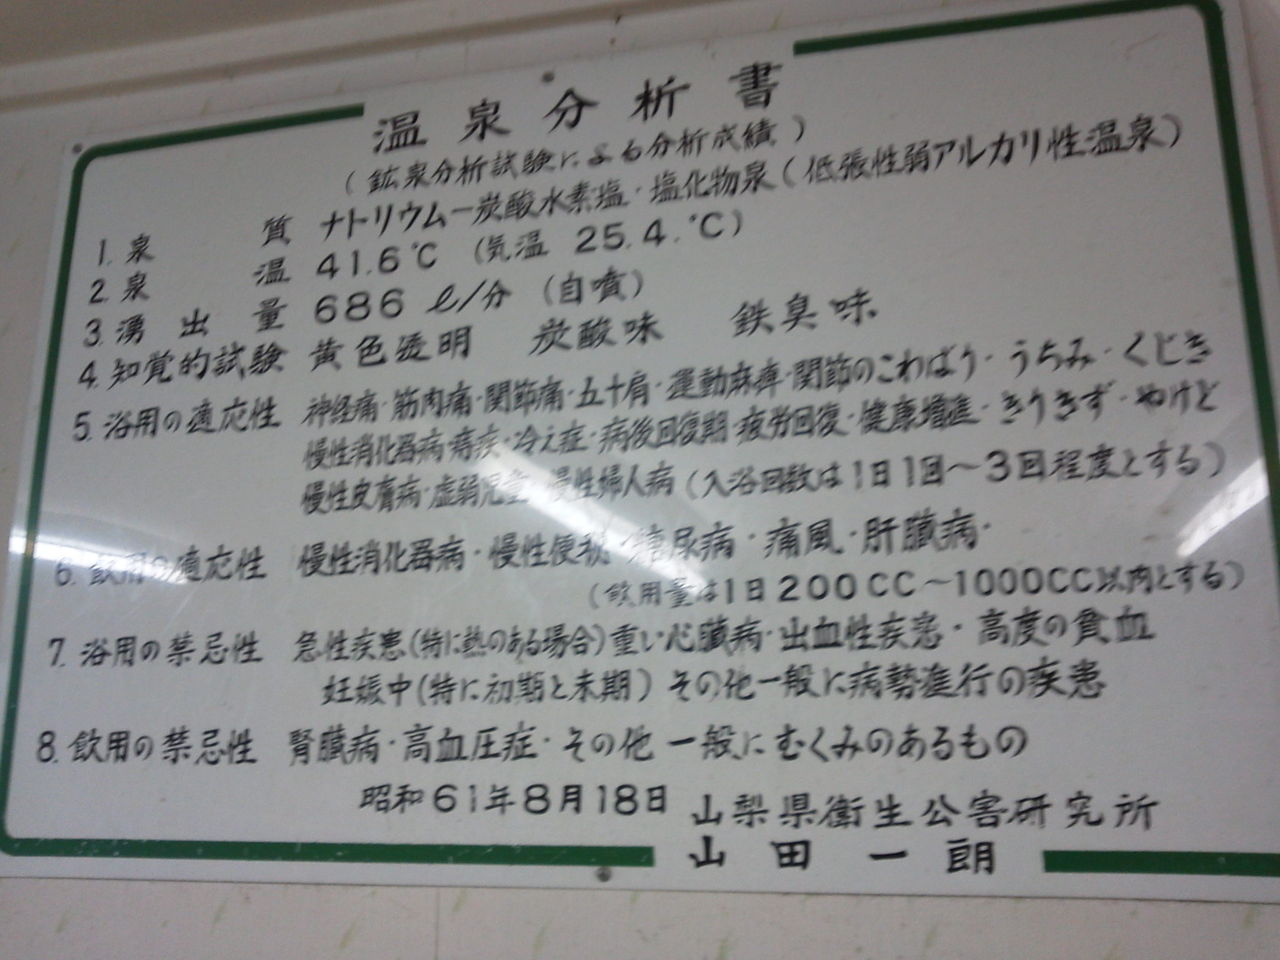 温泉分析書
(鉱泉分析試験による分析成績)
1. 泉質 ナトリウムー炭酸水素塩・塩化物泉(低張性弱アルカリ性温泉)
2. 泉温 41.6℃ (気温 25.4.℃)
3. 湧出量 686 ℓ/分 (自噴)
4. 知覚的試験 黄色透明 炭酸味 鉄臭味
5. 浴用の適応性 神経痛・筋肉痛・関節痛・五十肩・運動麻痺・関節のこわばり・うちみ・くじき
慢性消化器病・痔疾・冷え症・病後回復期・疲労回復・健康増進・きりきず・やけど
慢性皮膚病・虚弱児童・慢性婦人病(入浴回数は1日1回〜3回程度とする)
6. 飲用の適応性 慢性消化器病・慢性便秘・糖尿病・痛風・肝臓病・
(飲用量は1日200CC〜1000CC以内とする)
7. 浴用の禁忌性 急性疾患(特に熱のある場合)重い心臓病・出血性疾患・高度の貧血
妊娠中(特に初期と末期)その他一般に病勢進行の疾患
8. 飲用の禁忌性 腎臓病・高血圧症・その他一般にむくみのあるもの
昭和61年8月18日 山梨県衛生公害研究所
山田一朗